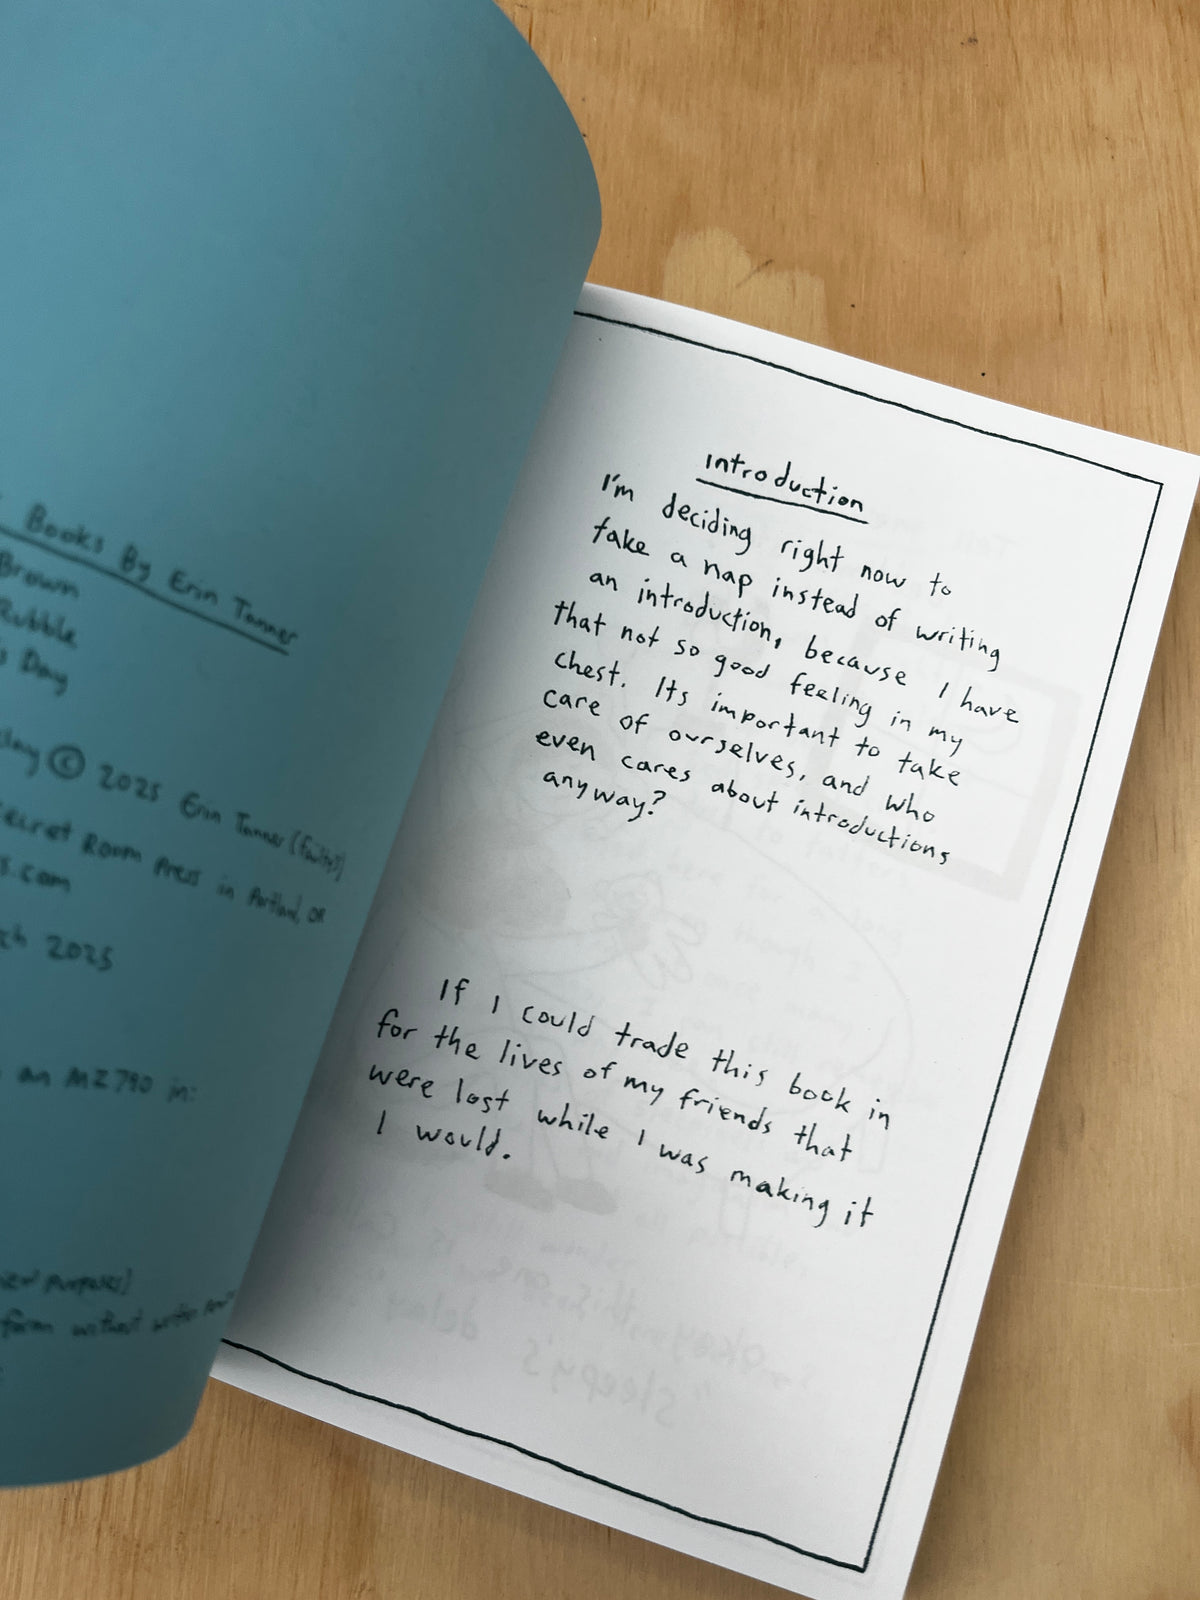 Books By Erin Tanner
Brown
Rubble
Day
© 2025 Erin Tanner (faults)
Secret Room Press in Portland, OR
.com
2025
an MZ790 in:
purposes)
form without written
introduction
I'm deciding right now to
take a nap instead of writing
an introduction, because I have
that not so good feeling in my
chest. Its important to take
care of ourselves, and who
even cares about introductions
anyway?
If I could trade this book in
for the lives of my friends that
were lost while I was making it
I would.